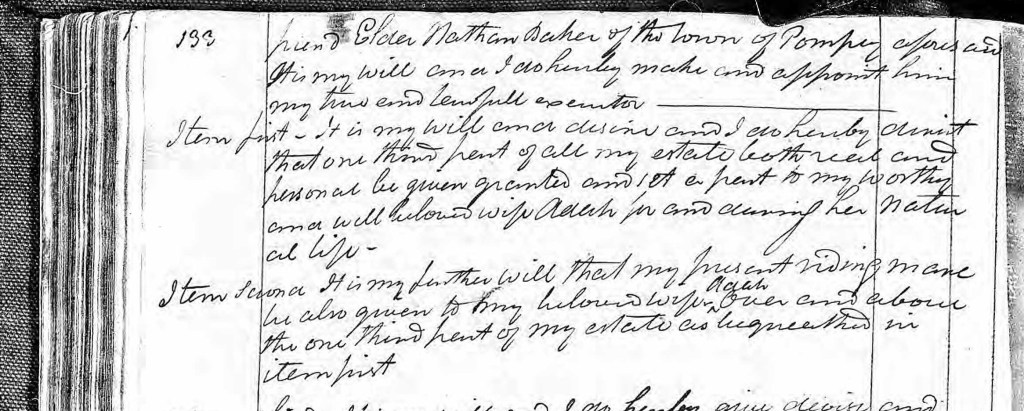 133
friend Elder Nathan Baker of the town of Pompey aforesaid
It is my will and I do hereby make and appoint him
my true and lawfull executor
Item first - It is my will and desire and I do hereby direct
that one third part of all my estate both real and
personal be given granted and set apart to my worthy
and well beloved wife Adah for and during her natur
al life -
Item second It is my further will that my present riding mare
be also given to my beloved wife Adah over and above
the one third part of my estate as bequeethed in
item first
will and I do hereby give devise and